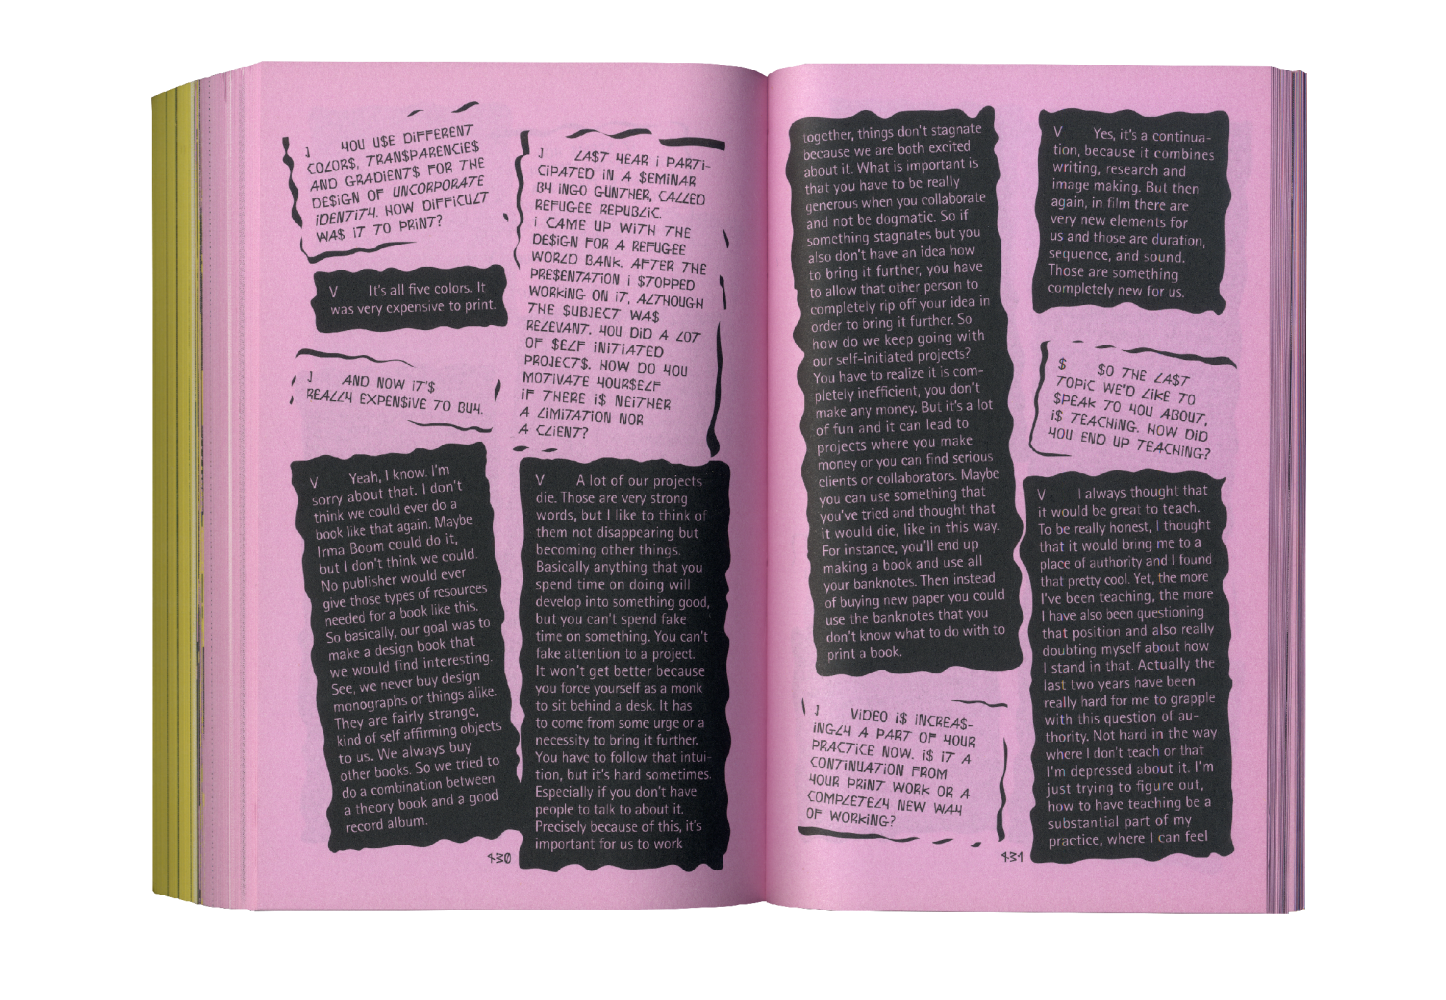 J YOU USE DIFFERENT
COLORS, TRANSPARENCIES
AND GRADIENTS FOR THE
DESIGN OF UNCORPORATE
IDENTITY. HOW DIFFICULT
WAS IT TO PRINT?
V It's all five colors. It
was very expensive to print.
J AND NOW IT'S
REALLY EXPENSIVE TO BUY.
V Yeah, I know. I'm
sorry about that. I don't
think we could ever do a
book like that again. Maybe
Irma Boom could do it,
but I don't think we could.
No publisher would ever
give those types of resources
needed for a book like this.
So basically, our goal was to
make a design book that
we would find interesting.
See, we never buy design
monographs or things alike.
They are fairly strange,
kind of self affirming objects
to us. We always buy
other books. So we tried to
do a combination between
a theory book and a good
record album.
J LAST YEAR I PARTI-
CIPATED IN A SEMINAR
BY INGO GÜNTHER, CALLED
REFUGEE REPUBLIC.
I CAME UP WITH THE
DESIGN FOR A REFUGEE
WORLD BANK. AFTER THE
PRESENTATION I STOPPED
WORKING ON IT, ALTHOUGH
THE SUBJECT WAS
RELEVANT. YOU DID A LOT
OF SELF INITIATED
PROJECTS. HOW DO YOU
MOTIVATE YOURSELF
IF THERE IS NEITHER
A LIMITATION NOR
A CLIENT?
V A lot of our projects
die. Those are very strong
words, but I like to think of
them not disappearing but
becoming other things.
Basically anything that you
spend time on doing will
develop into something good,
but you can't spend fake
time on something. You can't
fake attention to a project.
It won't get better because
you force yourself as a monk
to sit behind a desk. It has
to come from some urge or a
necessity to bring it further.
You have to follow that intui-
tion, but it's hard sometimes.
Especially if you don't have
people to talk to about it.
Precisely because of this, it's
important for us to work
430
together, things don't stagnate
because we are both excited
about it. What is important is
that you have to be really
generous when you collaborate
and not be dogmatic. So if
something stagnates but you
also don't have an idea how
to bring it further, you have
to allow that other person to
completely rip off your idea in
order to bring it further. So
how do we keep going with
our self-initiated projects?
You have to realize it is com-
pletely inefficient, you don't
make any money. But it's a lot
of fun and it can lead to
projects where you make
money or you can find serious
clients or collaborators. Maybe
you can use something that
you've tried and thought that
it would die, like in this way.
For instance, you'll end up
making a book and use all
your banknotes. Then instead
of buying new paper you could
use the banknotes that you
don't know what to do with to
print a book.
J VIDEO IS INCREAS-
INGLY A PART OF YOUR
PRACTICE NOW. IS IT A
CONTINUATION FROM
YOUR PRINT WORK OR A
COMPLETELY NEW WAY
OF WORKING?
V Yes, it's a continua-
tion, because it combines
writing, research and
image making. But then
again, in film there are
very new elements for
us and those are duration,
sequence, and sound.
Those are something
completely new for us.
S SO THE LAST
TOPIC WE'D LIKE TO
SPEAK TO YOU ABOUT,
IS TEACHING. HOW DID
YOU END UP TEACHING?
V I always thought that
it would be great to teach.
To be really honest, I thought
that it would bring me to a
place of authority and I found
that pretty cool. Yet, the more
I've been teaching, the more
I have also been questioning
that position and also really
doubting myself about how
I stand in that. Actually the
last two years have been
really hard for me to grapple
with this question of au-
thority. Not hard in the way
where I don't teach or that
I'm depressed about it. I'm
just trying to figure out,
how to have teaching be a
substantial part of my
practice, where I can feel
431